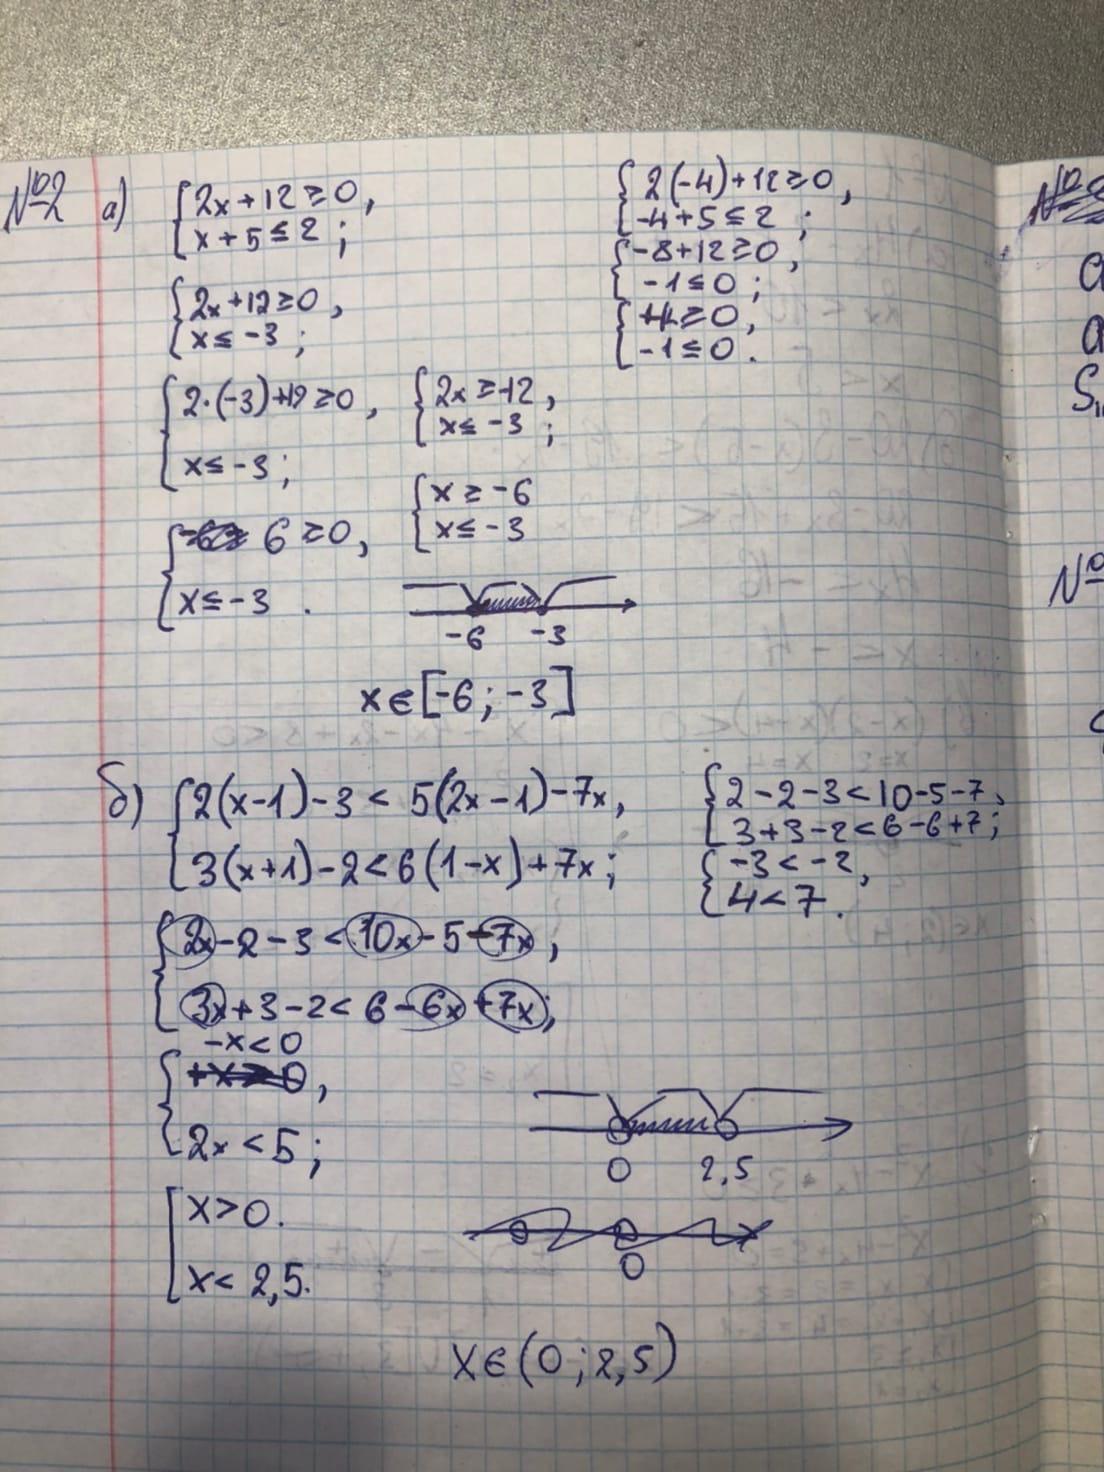 №2 а) {2x+12≥0,
x+5≤2;
{2x+12≥0,
x≤-3;
{2·(-3)+12≥0,
x≤-3;
6≥0,
x≤-3.
{2x≥-12,
x≤-3;
{x≥-6
x≤-3
-6 -3
x∈[-6;-3]
{2(-4)+12≥0,
-4+5≤2;
{-8+12≥0,
-1≤0;
{+4≥0,
-1≤0.
б) {2(x-1)-3<5(2x-1)-7x,
3(x+1)-2<6(1-x)+7x;
{2x-2-3<10x-5-7x,
3x+3-2<6-6x+7x;
-x<0
2x<5;
[x>0.
x<2,5.
{2-2-3<10-5-7,
3+3-2<6-6+7;
{-3<-2,
4<7.
0 2,5
0
x∈(0;2,5)
№